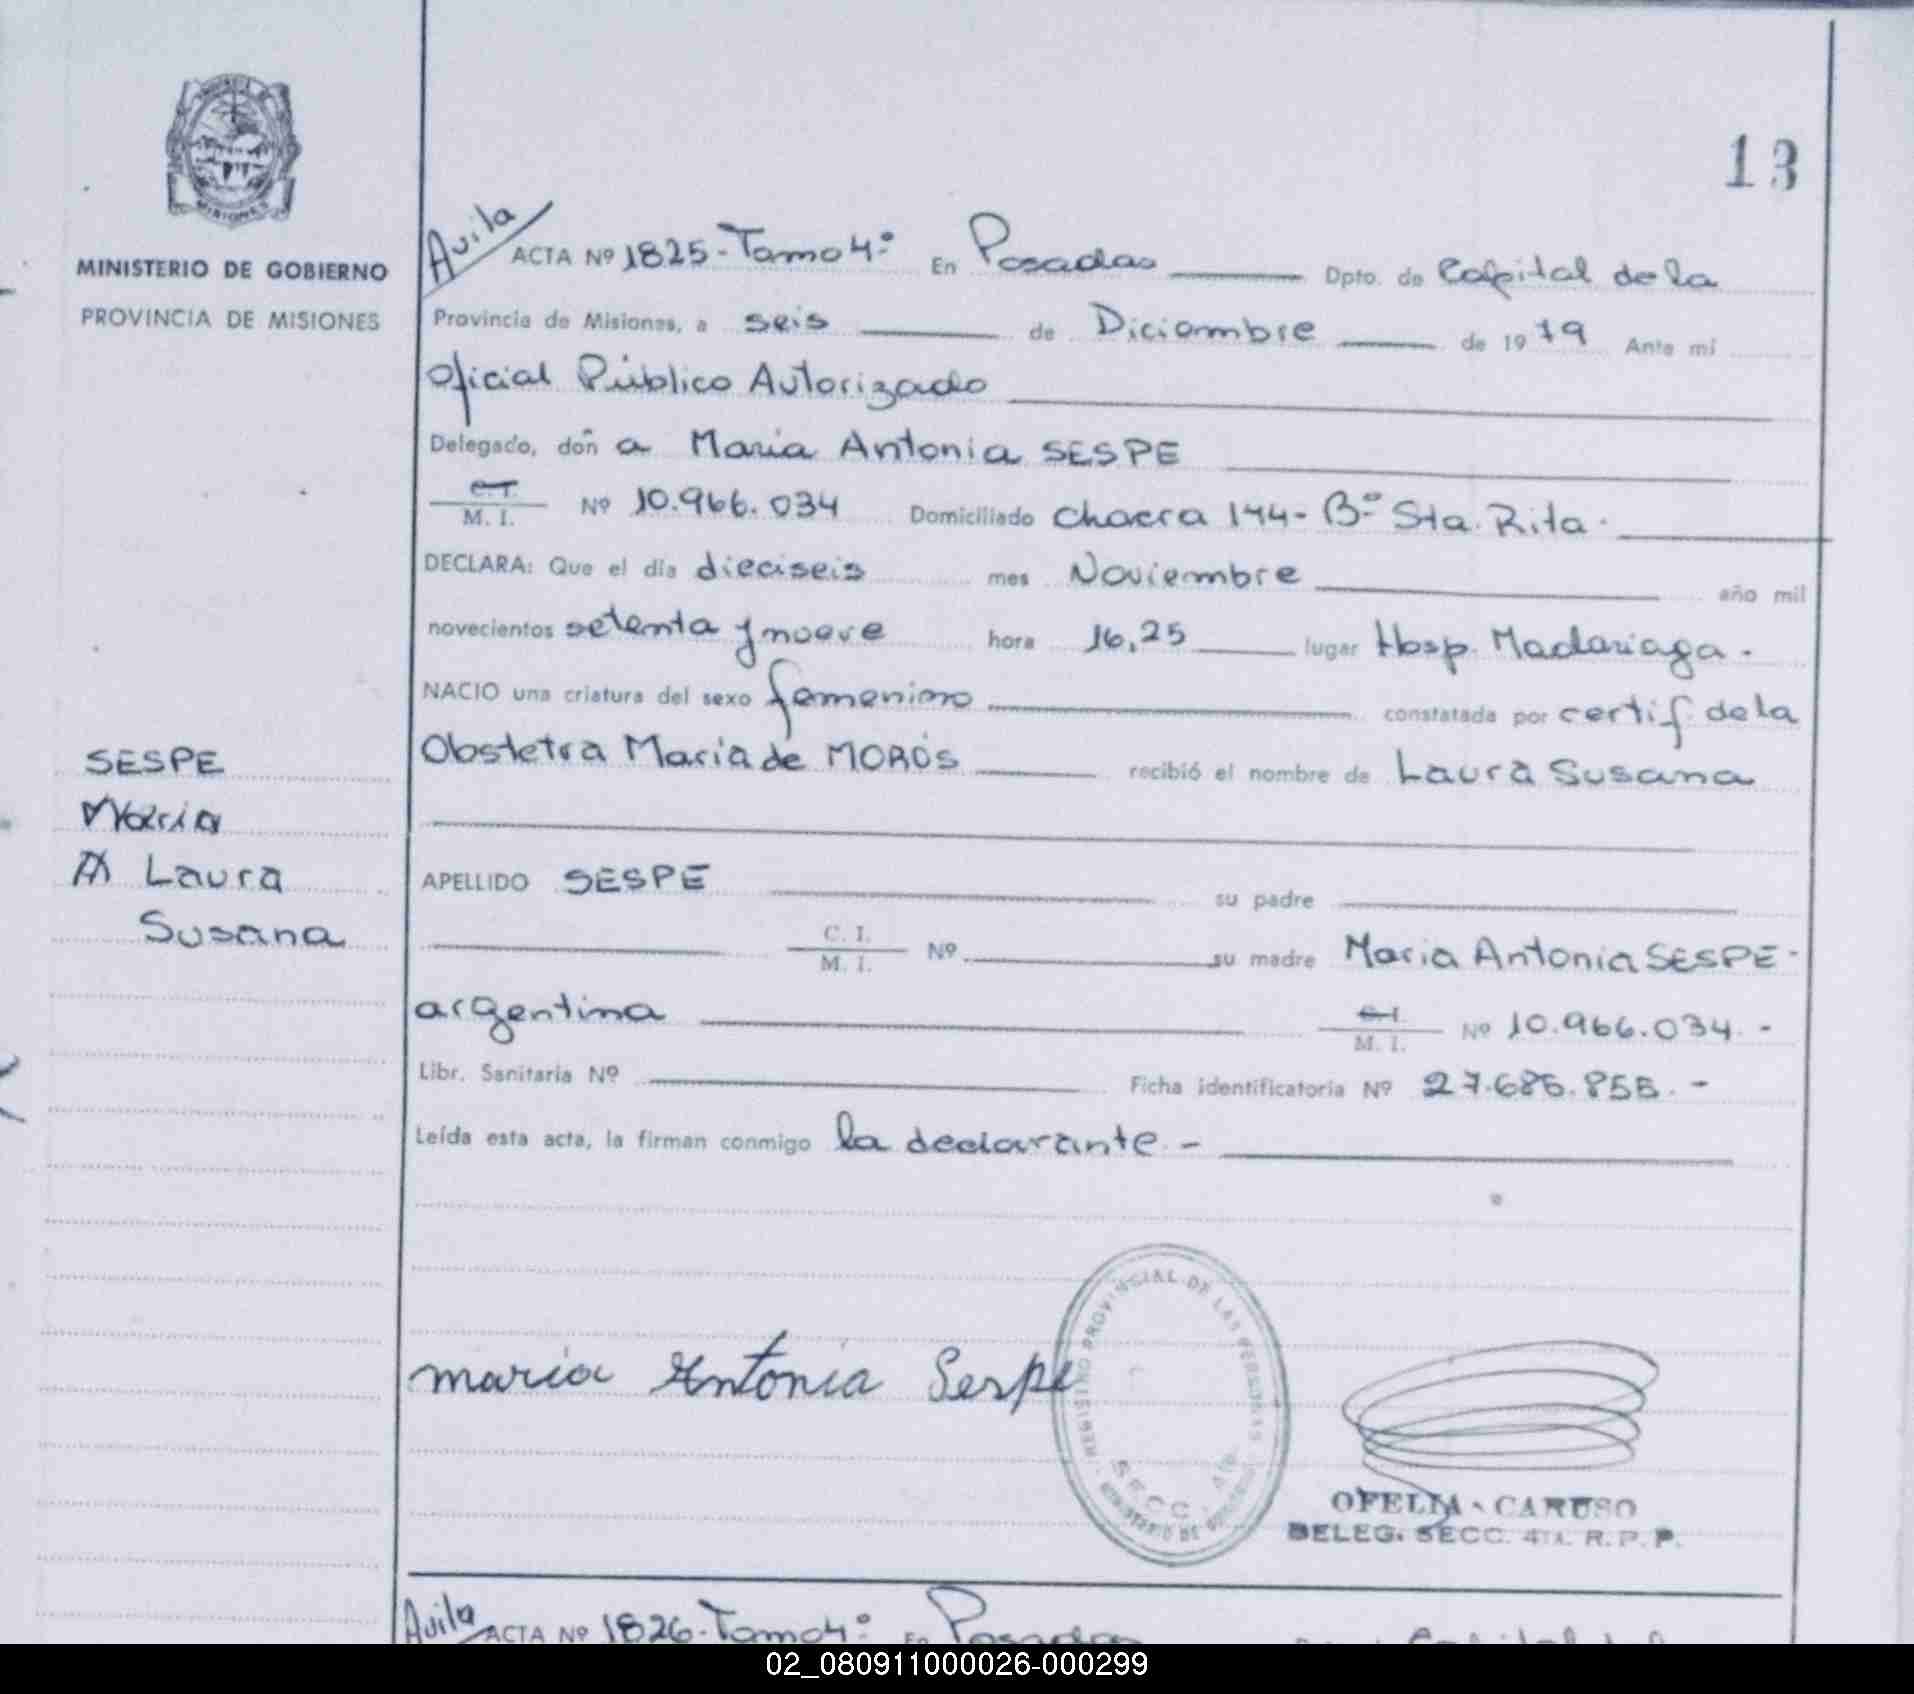 13
MISIONES
MINISTERIO DE GOBIERNO
PROVINCIA DE MISIONES
Avila
ACTA Nº 1825-Tomo 4º En Posadas Dpto. de Capital de la
Provincia de Misiones, a seis de Diciembre de 1979 Ante mi
Oficial Público Autorizado
Delegado, doñ a Maria Antonia SESPE
C.I. M. I. Nº 10.966.034 Domiciliado chacra 144-Bº Sta. Rita.
DECLARA: Que el día dieciseis mes Noviembre año mil
novecientos setenta y nueve hora 16,25 lugar Hosp. Madariaga.
NACIO una criatura del sexo femenino constatada por certif. de la
Obstetra Maria de MOROS recibió el nombre de Laura Susana
SESPE
Maria
A Laura
Susana
APELLIDO SESPE su padre
C. I. M. I. Nº su madre Maria Antonia SESPE-
argentina C.I. M. I. Nº 10.966.034.-
Libr. Sanitaria Nº Ficha identificatoria Nº 27.685.855.-
Leída esta acta, la firman conmigo la declarante.-
maria Antonia Sespe
REGISTRO PROVINCIAL DE LAS PERSONAS
SECC. 4ta
MINISTERIO DE GOBIERNO
OFELIA CARUSO
DELEG. SECC. 4TA. R. P. P.
Avila
ACTA Nº 1826-Tomo 4º: En Posadas
02_080911000026-000299